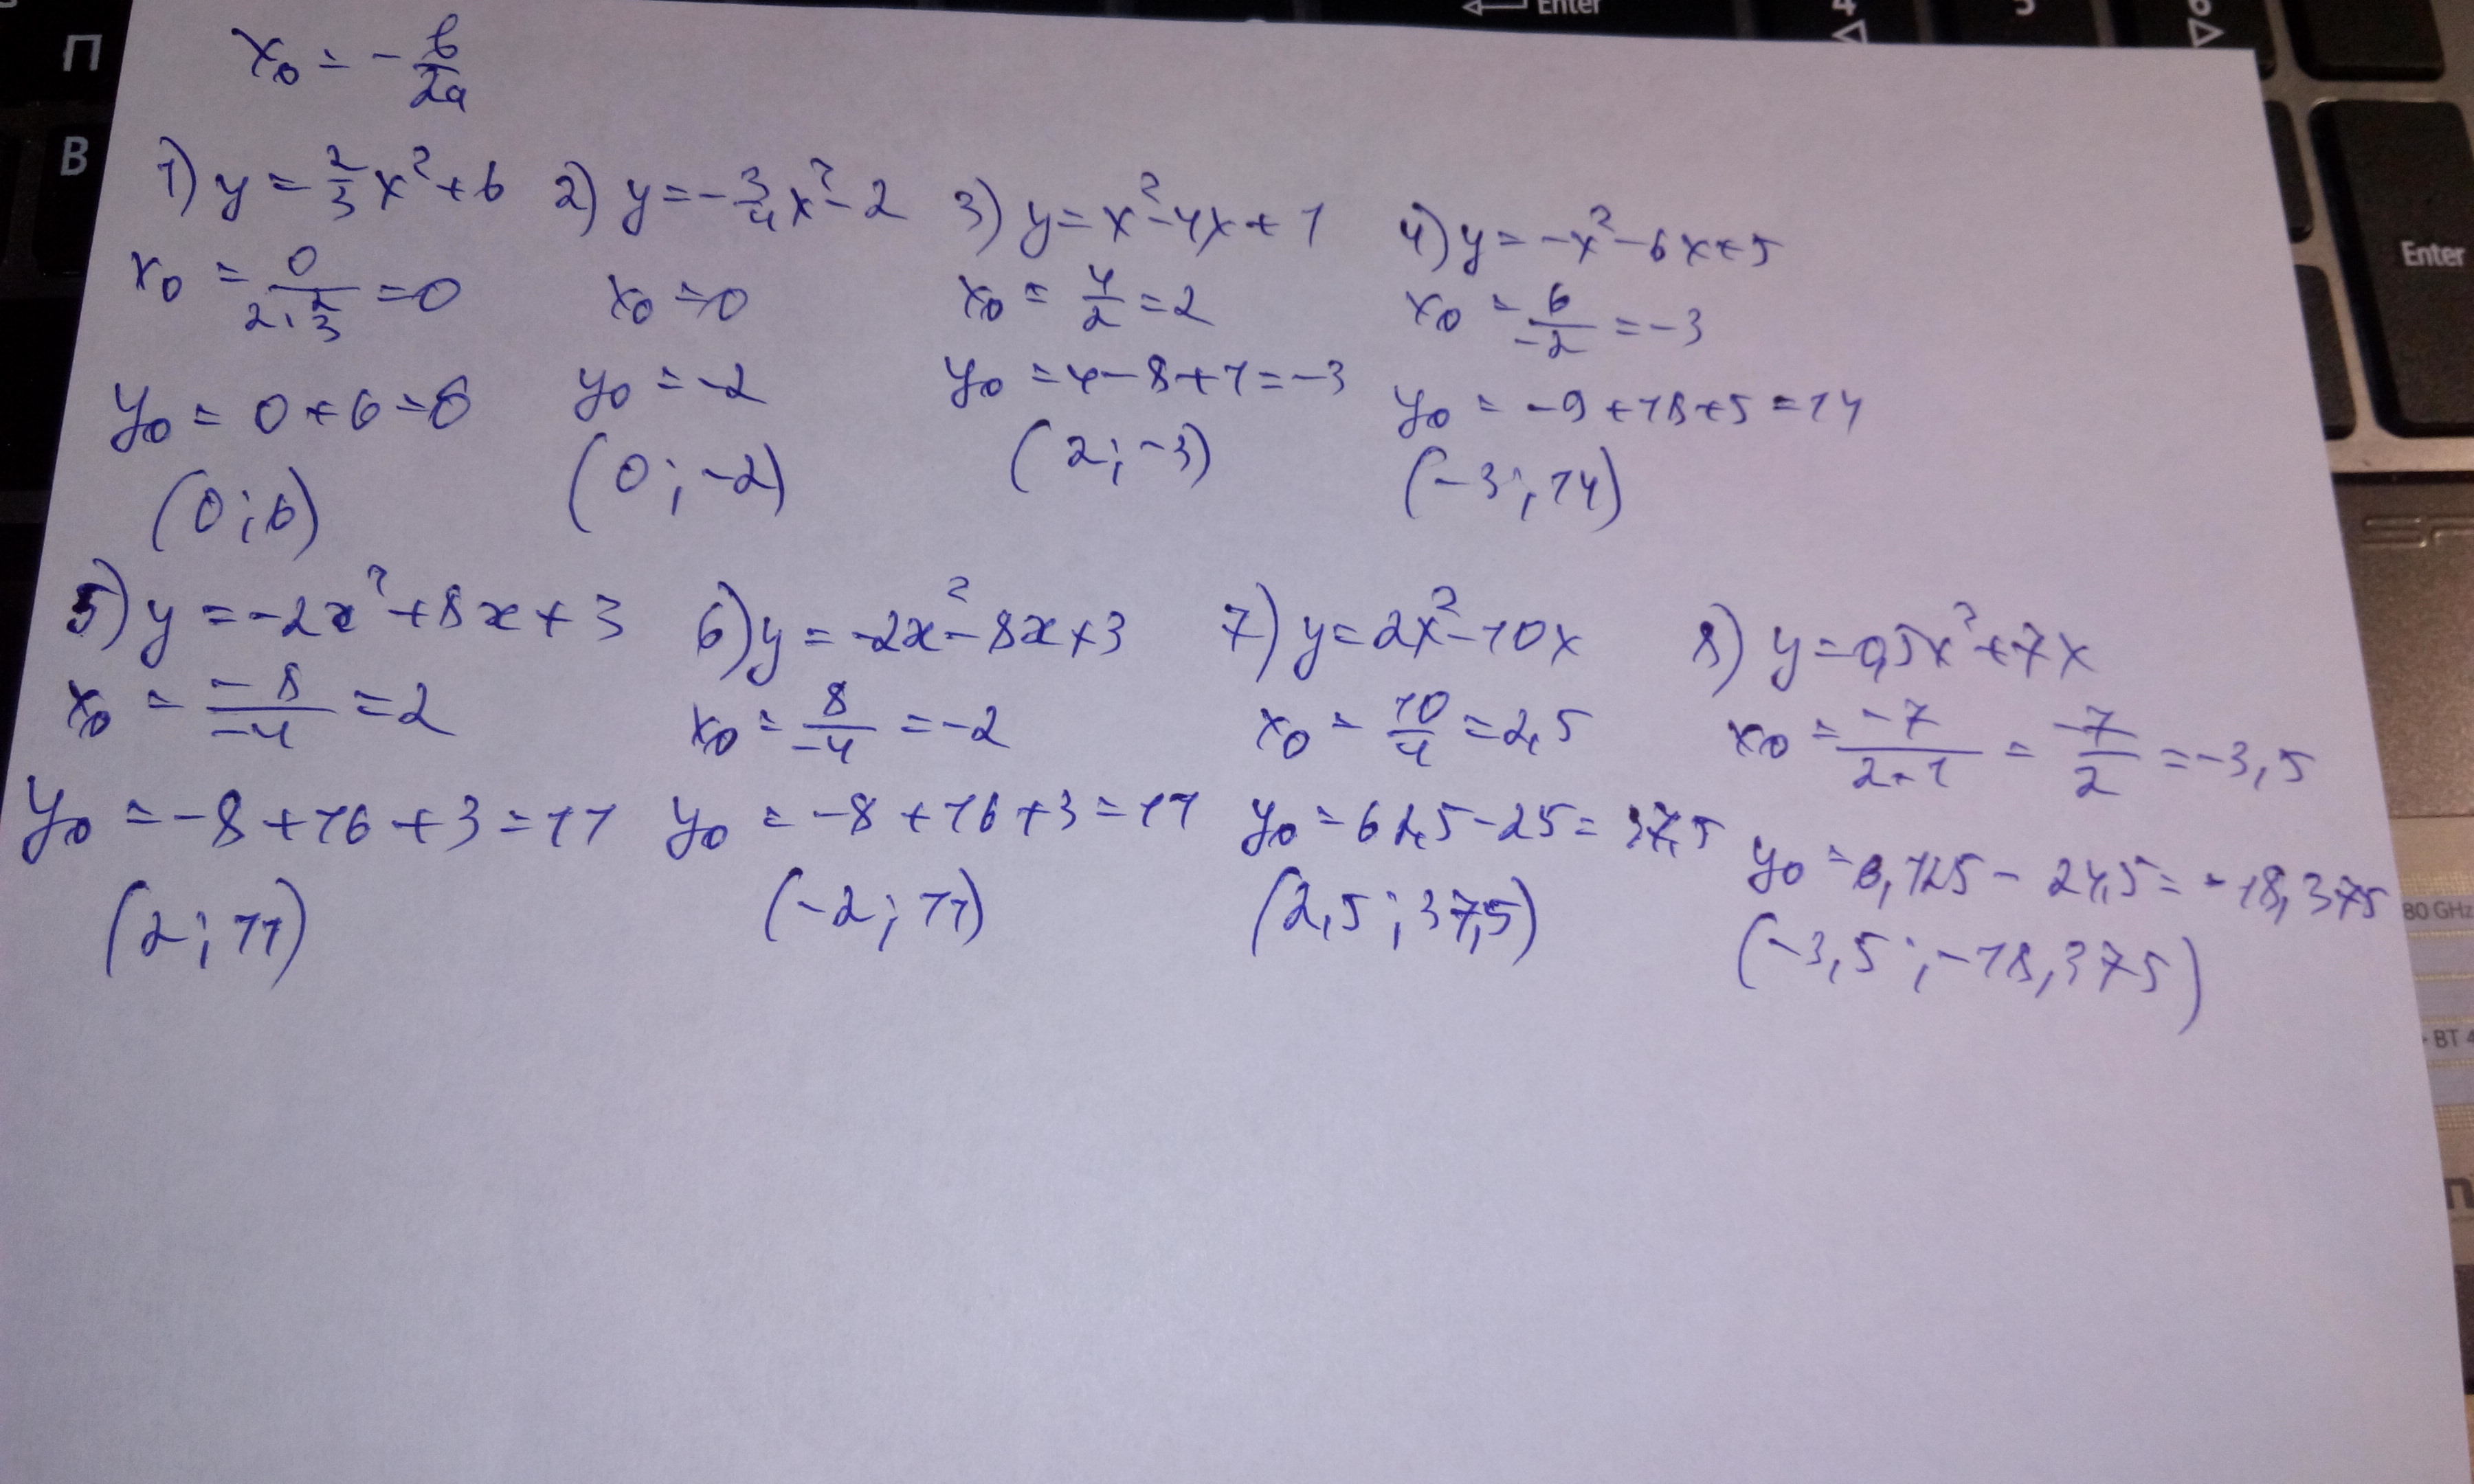 Enter
4
5
6
П
В
Enter
x₀ = - b/2a
1) y = 2/3 x² + 6
x₀ = 0/(2·2/3) = 0
y₀ = 0 + 6 = 6
(0; 6)
2) y = - 3/4 x² - 2
x₀ = 0
y₀ = -2
(0; -2)
3) y = x² - 4x + 1
x₀ = 4/2 = 2
y₀ = 4 - 8 + 1 = -3
(2; -3)
4) y = -x² - 6x + 5
x₀ = 6/-2 = -3
y₀ = -9 + 18 + 5 = 14
(-3; 14)
5) y = -2x² + 8x + 3
x₀ = -8/-4 = 2
y₀ = -8 + 16 + 3 = 11
(2; 11)
6) y = -2x² - 8x + 3
x₀ = 8/-4 = -2
y₀ = -8 + 16 + 3 = 11
(-2; 11)
7) y = 2x² - 10x
x₀ = 10/4 = 2,5
y₀ = 62,5 - 25 = 37,5
(2,5; 37,5)
8) y = 0,5x² + 7x
x₀ = -7/(2·1) = -7/2 = -3,5
y₀ = 6,125 - 24,5 = -18,375
(-3,5; -18,375)
80 GHz
BT 4